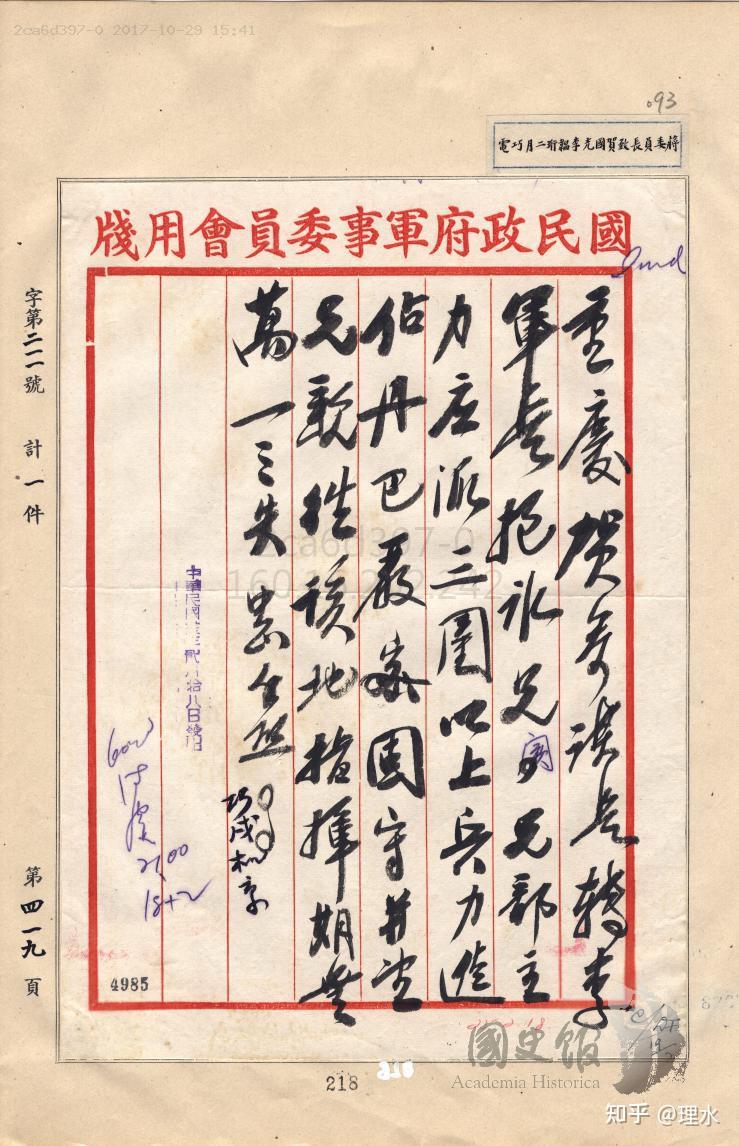 2ca6d397-0 2017-10-29 15:41
093
蔣委員長致賀國光李韞珩二月巧電
國民政府軍事委員會用牋
重慶賀參謀長轉李
軍長抱冰兄密兄部主
力应派三團以上兵力進
佔丹巴嚴密固守并望
兄親往該地指揮期無
萬一之失
巧戌机京
中華民國 貳月拾八日
21,00
18+2
4985
字第二一一號 計一件
第四一九頁
2ca6d397-0
218
國史館
Academia Historica
知乎 @理水